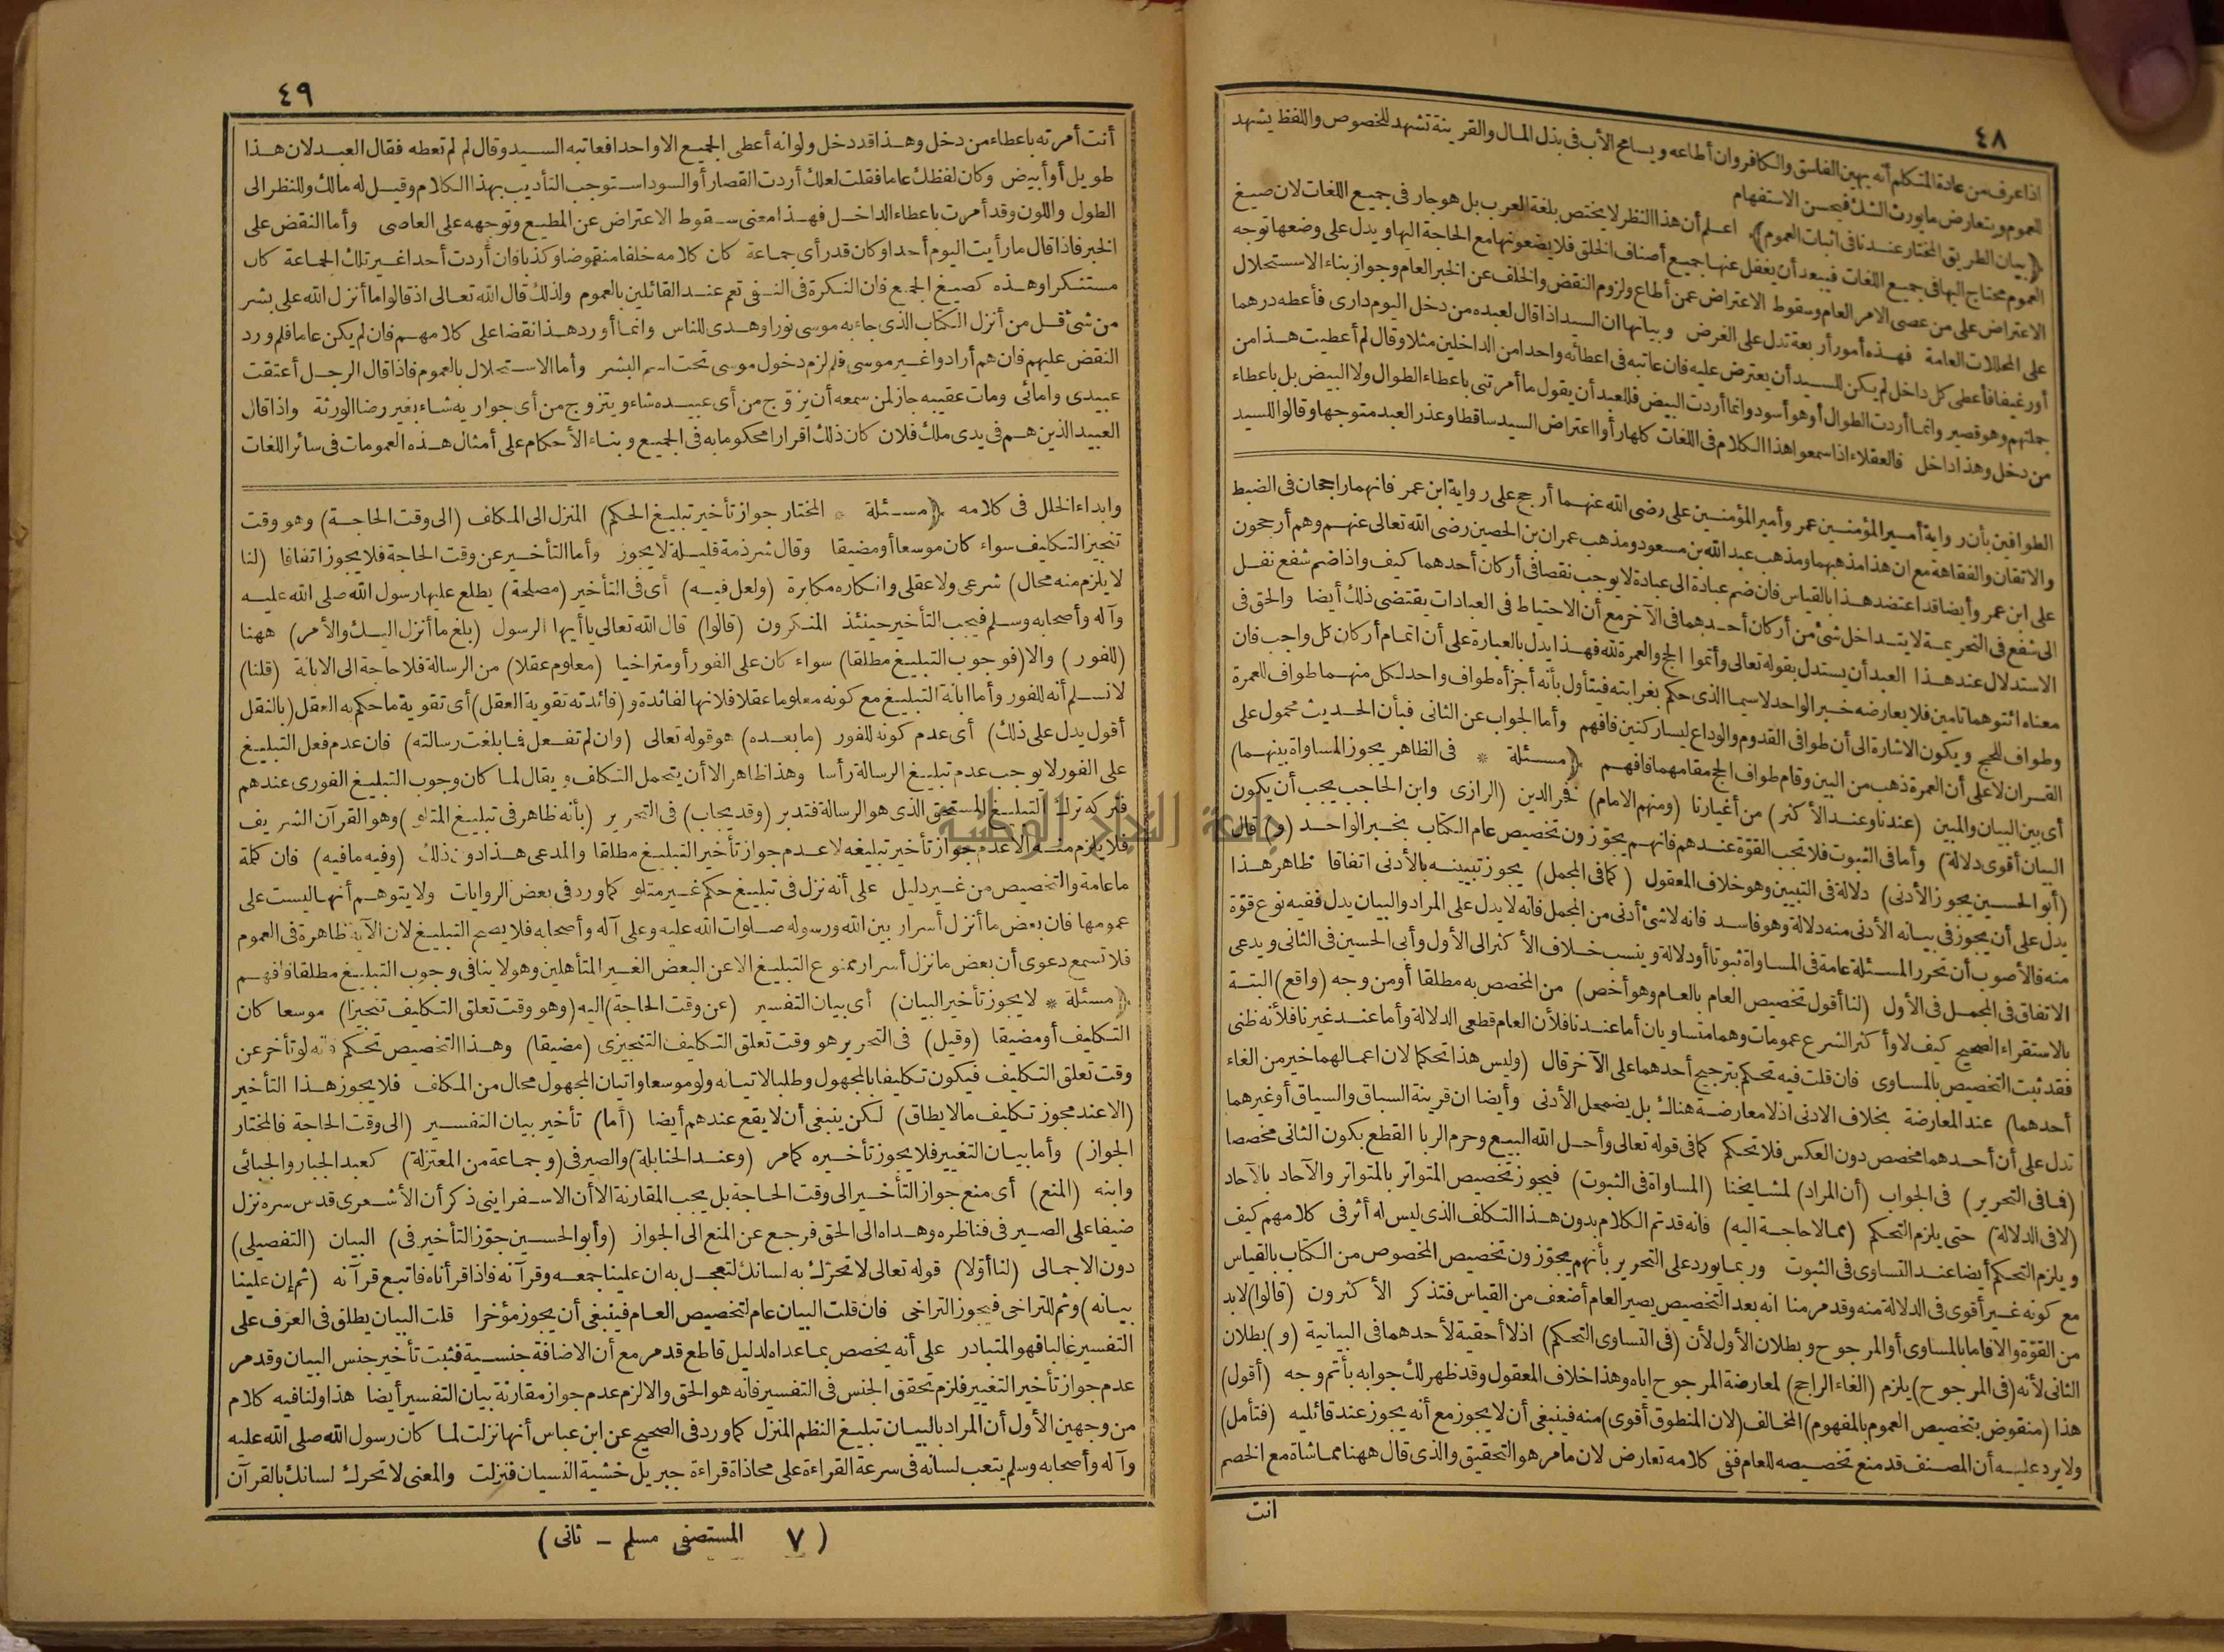 ٤٨
اذا عرف من عادة المتكلم أنه يهين الفاسق والكافر وان أطاعه ويسامح الأب فى بذل المال والقرينة تشهد للخصوص واللفظ يشهد
للعموم ويتعارض ما يورث الشك فيحسن الاستفهام
﴿بيان الطريق المختار عندنا فى اثبات العموم﴾ اعلم أن هذا النظر لا يختص بلغة العرب بل هو جار فى جميع اللغات لان صيغ
العموم محتاج اليها فى جميع اللغات فيبعد أن يغفل عنها جميع أصناف الخلق فلا يضعونها مع الحاجة اليها ويدل على وضعها توجه
الاعتراض على من عصى الامر العام وسقوط الاعتراض عمن أطاع ولزوم النقض والخلف عن الخبر العام وجواز بناء الاستحلال
على المحللات العامة فهذه أمور أربعة تدل على الغرض وبيانها ان السيد اذا قال لعبده من دخل اليوم دارى فأعطه درهما
أو رغيفا فأعطى كل داخل لم يكن للسيد أن يعترض عليه فان عاتبه فى اعطائه واحدا من الداخلين مثلا وقال لم أعطيت هذا من
جملتهم وهو قصير وانما أردت الطوال أو هو أسود وانما أردت البيض فللعبد أن يقول ما أمرتنى باعطاء الطوال ولا البيض بل باعطاء
من دخل وهذا داخل فالعقلاء اذا سمعوا هذا الكلام فى اللغات كلها رأوا اعتراض السيد ساقطا وعذر العبد متوجها وقالوا للسيد
الطوافين بأن رواية أمير المؤمنين عمر وأمير المؤمنين على رضى الله عنهما أرجح على رواية ابن عمر فانهما راجحان فى الضبط
والاتقان والفقاهة مع ان هذا مذهبهما ومذهب عبد الله بن مسعود ومذهب عمران بن الحصين رضى الله تعالى عنهم وهم أرجحون
على ابن عمر وأيضا قد اعتضد هذا بالقياس فان ضم عبادة الى عبادة لا يوجب نقصا فى أركان أحدهما كيف واذا ضم شفع نفل
الى شفع فى التحريمة لا يتداخل شئ من أركان أحدهما فى الآخر مع أن الاحتياط فى العبادات يقتضى ذلك أيضا والحق فى
الاستدلال عند هذا العبد أن يستدل بقوله تعالى وأتموا الحج والعمرة لله فهذا يدل بالعبارة على أن اتمام أركان كل واجب فان
معناه ائتوهما تامين فلا يعارضه خبر الواحد لا سيما الذى حكم بغرابته فيتأول بأنه أجزأه طواف واحد لكل منهما طواف للعمرة
وطواف للحج ويكون الاشارة الى أن طوافى القدوم والوداع ليسا ركنين فافهم وأما الجواب عن الثانى فبأن الحديث محمول على
القران لا على أن العمرة ذهب من البين وقام طواف الحج مقامهما فافهم ﴿مسئلة * فى الظاهر يجوز المساواة بينهما)
أى بين البيان والمبين (عندنا وعند الأكثر) من أغيارنا (ومنهم الامام) فخر الدين (الرازى وابن الحاجب يجب أن يكون
البيان أقوى دلالة) وأما فى الثبوت فلا تجب القوة عندهم فانهم يجوزون تخصيص عام الكتاب بخبر الواحد (و) قال
(أبو الحسين يجوز الأدنى) دلالة فى التبيين وهو خلاف المعقول (كما فى المجمل) يجوز تبيينه بالأدنى اتفاقا ظاهر هذا
يدل على أن يجوز فى بيانه الأدنى منه دلالة وهو فاسد فانه لا شئ أدنى من المجمل فانه لا يدل على المراد والبيان يدل ففيه نوع قوة
منه فالأصوب أن تحرر المسئلة عامة فى المساواة ثبوتا أو دلالة وينسب خلاف الأكثر الى الأول وأبى الحسين فى الثانى ويدعى
الاتفاق فى المجمل فى الأول (لنا أقول تخصيص العام بالعام وهو أخص) من المخصص به مطلقا أو من وجه (واقع) البتة
بالاستقراء الصحيح كيف لا وأكثر الشرع عمومات وهما متساويان أما عندنا فلأن العام قطعى الدلالة وأما عند غيرنا فلأنه ظنى
فقد ثبت التخصيص بالمساوى فان قلت فيه تحكم بترجيح أحدهما على الآخر قال (وليس هذا تحكما لان اعمالهما خير من الغاء
أحدهما) عند المعارضة بخلاف الادنى اذ لا معارضة هناك بل يضمحل الأدنى وأيضا ان قرينة السباق والسياق أو غيرهما
تدل على أن أحدهما مخصص دون العكس فلا تحكم كما فى قوله تعالى وأحل الله البيع وحرم الربا القطع بكون الثانى مخصصا
(فما فى التحرير) فى الجواب (أن المراد) لمشايخنا (المساواة فى الثبوت) فيجوز تخصيص المتواتر بالمتواتر والآحاد بالآحاد
(لا فى الدلالة) حتى يلزم التحكم (مما لا حاجة اليه) فانه قد تم الكلام بدون هذا التكلف الذى ليس له أثر فى كلامهم كيف
ويلزم التحكم أيضا عند التساوى فى الثبوت وربما يورد على التحرير بأنهم يجوزون تخصيص المخصوص من الكتاب بالقياس
مع كونه غير أقوى فى الدلالة منه وقد مر منا انه بعد التخصيص يصير العام أضعف من القياس فتذكر الأكثرون (قالوا) لا بد
من القوة والا فاما بالمساوى أو المرجوح وبطلان الأول لأن (فى التساوى التحكم) اذ لا أحقية لأحدهما فى البيانية (و) بطلان
الثانى لأنه (فى المرجوح) يلزم (الغاء الراجح) لمعارضة المرجوح اياه وهذا خلاف المعقول وقد ظهر لك جوابه بأتم وجه (أقول)
هذا (منقوض بتخصيص العموم بالمفهوم) المخالف (لان المنطوق أقوى) منه فينبغى أن لا يجوز مع أنه يجوز عند قائليه (فتأمل)
ولا يرد عليه أن المصنف قد منع تخصيصه للعام ففى كلامه تعارض لان ما مر هو التحقيق والذى قال ههنا مماشاة مع الخصم
انت
٤٩
أنت أمرته باعطاء من دخل وهذا قد دخل ولو انه أعطى الجميع الا واحدا فعاتبه السيد وقال لم لم تعطه فقال العبد لان هذا
طويل أو أبيض وكان لفظك عاما فقلت لعلك أردت القصار أو السود استوجب التأديب بهذا الكلام وقيل له مالك وللنظر الى
الطول واللون وقد أمرت باعطاء الداخل فهذا معنى سقوط الاعتراض عن المطيع وتوجهه على العاصى وأما النقض على
الخبر فاذا قال ما رأيت اليوم أحدا وكان قد رأى جماعة كان كلامه خلفا منقوضا وكذبا فان أردت أحدا غير تلك الجماعة كان
مستنكرا وهذه كصيغ الجمع فان النكرة فى النفى تعم عند القائلين بالعموم ولذلك قال الله تعالى اذ قالوا ما أنزل الله على بشر
من شئ قل من أنزل الكتاب الذى جاء به موسى نورا وهدى للناس وانما أورد هذا نقضا على كلامهم فان لم يكن عاما فلم ورد
النقض عليهم فان هم أرادوا غير موسى فلم لزم دخول موسى تحت اسم البشر وأما الاستحلال بالعموم فاذا قال الرجل أعتقت
عبيدى وامائى ومات عقيبه جاز لمن سمعه أن يزوج من أى عبيده شاء ويتزوج من أى جواريه شاء بغير رضا الورثة واذا قال
العبيد الذين هم فى يدى ملك فلان كان ذلك اقرارا محكوما به فى الجميع وبناء الأحكام على أمثال هذه العمومات فى سائر اللغات
وابداء الخلل فى كلامه ﴿مسئلة * المختار جواز تأخير تبليغ الحكم) المنزل الى المكلف (الى وقت الحاجة) وهو وقت
تنجيز التكليف سواء كان موسعا أو مضيقا وقال شرذمة قليلة لا يجوز وأما التأخير عن وقت الحاجة فلا يجوز اتفاقا (لنا
لا يلزم منه محال) شرعى ولا عقلى وانكاره مكابرة (ولعل فيه) أى فى التأخير (مصلحة) يطلع عليها رسول الله صلى الله عليه
وآله وأصحابه وسلم فيجب التأخير حينئذ المنكرون (قالوا) قال الله تعالى يا أيها الرسول (بلغ ما أنزل اليك والأمر) ههنا
(للفور) والا (فوجوب التبليغ مطلقا) سواء كان على الفور أو متراخيا (معلوم عقلا) من الرسالة فلا حاجة الى الابانة (قلنا)
لا نسلم أنه للفور وأما ابانة التبليغ مع كونه معلوما عقلا فلانها لفائدة و (فائدته تقوية العقل) أى تقوية ما حكم به العقل (بالنقل
أقول يدل على ذلك) أى عدم كونه للفور (ما بعده) هو قوله تعالى (وان لم تفعل فما بلغت رسالته) فان عدم فعل التبليغ
على الفور لا يوجب عدم تبليغ الرسالة رأسا وهذا ظاهر الا أن يتحمل التكلف ويقال لما كان وجوب التبليغ الفورى عندهم
فتركه ترك التبليغ المستحق الذى هو الرسالة فتدبر (وقد يجاب) فى التحرير (بأنه ظاهر فى تبليغ المتلو) وهو القرآن الشريف
فلا يلزم منه الا عدم جواز تأخير تبليغه لا عدم جواز تأخير التبليغ مطلقا والمدعى هذا دون ذلك (وفيه ما فيه) فان كلمة
ما عامة والتخصيص من غير دليل على أنه نزل فى تبليغ حكم غير متلو كما ورد فى بعض الروايات ولا يتوهم أنها ليست على
عمومها فان بعض ما أنزل أسرار بين الله ورسوله صلوات الله عليه وعلى آله وأصحابه فلا يصح التبليغ لان الآية ظاهرة فى العموم
فلا تسمع دعوى أن بعض ما نزل أسرار ممنوع التبليغ الا عن البعض الغير المتأهلين وهو لا ينافى وجوب التبليغ مطلقا فافهم
﴿مسئلة * لا يجوز تأخير البيان) أى بيان التفسير (عن وقت الحاجة) اليه (وهو وقت تعلق التكليف تنجيزا) موسعا كان
التكليف أو مضيقا (وقيل) فى التحرير هو وقت تعلق التكليف التنجيزى (مضيقا) وهذا التخصيص تحكم فانه لو تأخر عن
وقت تعلق التكليف فيكون تكليفا بالمجهول وطلبا لاتيانه ولو موسعا واتيان المجهول محال من المكلف فلا يجوز هذا التأخير
(الا عند مجوز تكليف ما لا يطاق) لكن ينبغى أن لا يقع عندهم أيضا (أما) تأخير بيان التفسير (الى وقت الحاجة فالمختار
الجواز) وأما بيان التغيير فلا يجوز تأخيره كما مر (وعند الحنابلة) والصيرفى (وجماعة من المعتزلة) كعبد الجبار والجبائى
وابنه (المنع) أى منع جواز التأخير الى وقت الحاجة بل يجب المقارنة الا أن الاسفراينى ذكر أن الأشعرى قدس سره نزل
ضيفا على الصيرفى فناظره وهداه الى الحق فرجع عن المنع الى الجواز (وأبو الحسين جوز التأخير فى) البيان (التفصيلى)
دون الاجمالى (لنا أولا) قوله تعالى لا تحرك به لسانك لتعجل به ان علينا جمعه وقرآنه فاذا قرأناه فاتبع قرآنه (ثم إن علينا
بيانه) وثم للتراخى فيجوز التراخى فان قلت البيان عام لتخصيص العام فينبغى أن يجوز مؤخرا قلت البيان يطلق فى العرف على
التفسير غالبا فهو المتبادر على أنه يخصص بما عداه لدليل قاطع قد مر مع أن الاضافة جنسية فثبت تأخير جنس البيان وقد مر
عدم جواز تأخير التغيير فلزم تحقق الجنس فى التفسير فانه هو الحق والا لزم عدم جواز مقارنة بيان التفسير أيضا هذا ولنا فيه كلام
من وجهين الأول أن المراد بالبيان تبليغ النظم المنزل كما ورد فى الصحيح عن ابن عباس أنها نزلت لما كان رسول الله صلى الله عليه
وآله وأصحابه وسلم يتعب لسانه فى سرعة القراءة على محاذاة قراءة جبريل خشية النسيان فنزلت والمعنى لا تحرك لسانك بالقرآن
(٧ المستصفى مسلم - ثانى)